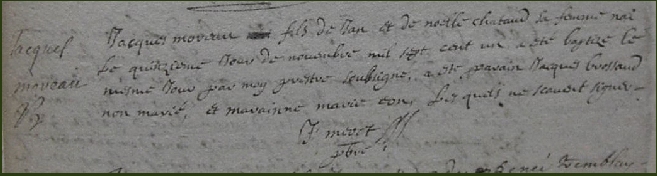 Jacques
moveau
Jacques moveau fils de Jan et de noelle chataud sa femme nai
Le quinzieme Jour de novembre mil sept cent un a ete baptize le
mesme Jour par moy prestre soubsigne, a ete parain Jacques brossaud
non marié, et marainne marie les quels ne scavent signer
pbre
René Tremblay